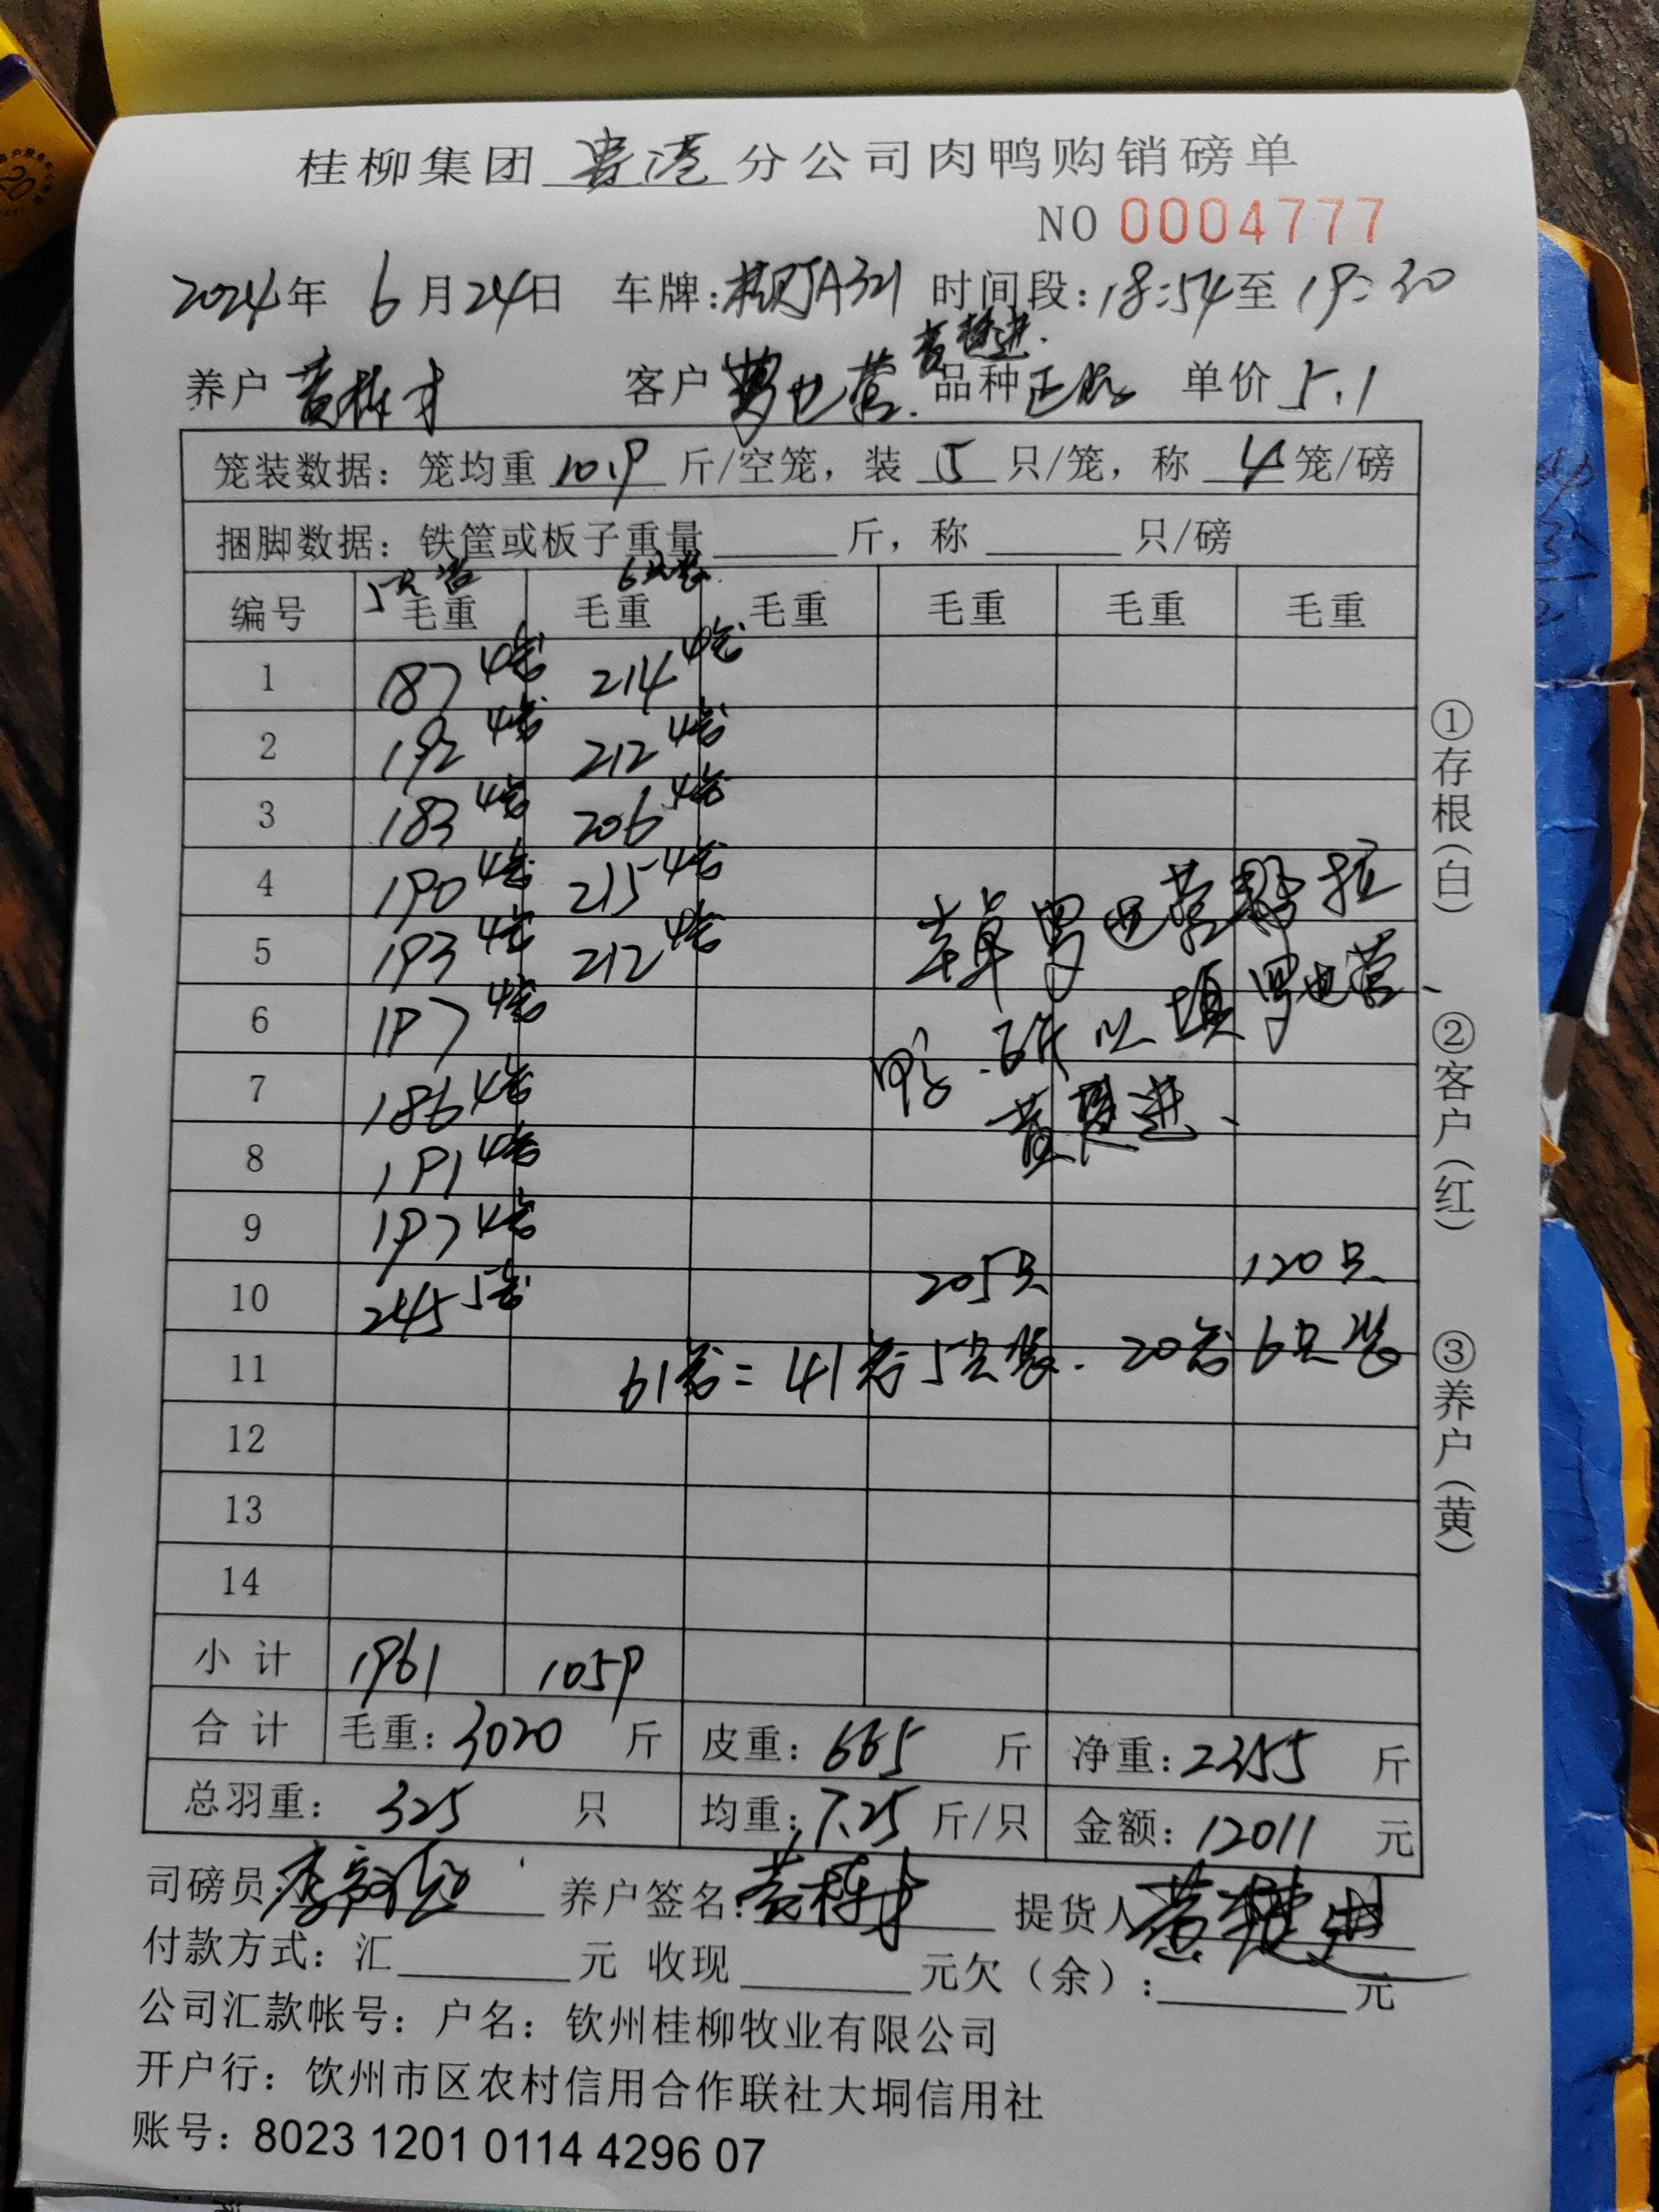 桂柳集团 贵港 分公司肉鸭购销磅单
NO 0004777
2024年 6月24日 车牌:桂JA321 时间段:18:54至19:30
黄楚进.
养户 黄栋才 客户 罗世营. 品种 单价 5.1
笼装数据: 笼均重 10.9 斤/空笼, 装 5 只/笼, 称 4 笼/磅
捆脚数据: 铁筐或板子重量 斤, 称 只/磅
5只装 6只装
编号 毛重 毛重 毛重 毛重 毛重 毛重
1 187 4笼 214 4笼
2 192 4笼 212 4笼
3 183 4笼 206 4笼
4 190 4笼 215 4笼
5 193 4笼 212 4笼
6 197 4笼
7 186 4笼
8 191 4笼
9 197 4笼
10 245 5笼
11
12
13
14
罗世营 拉
鸭.所以填罗世营、
黄楚进、
205只 120只
61笼=41笼5只装.20笼6只装
小计 1961 1059
合计 毛重: 3020 斤 皮重: 665 斤 净重: 2355 斤
总羽重: 325 只 均重: 7.25 斤/只 金额: 12011 元
司磅员: 养户签名: 黄栋才 提货人 黄楚进
付款方式: 汇 元 收现 元欠(余): 元
公司汇款帐号: 户名: 钦州桂柳牧业有限公司
开户行: 钦州市区农村信用合作联社大垌信用社
账号: 8023 1201 0114 4296 07
①存根(白)
②客户(红)
③养户(黄)